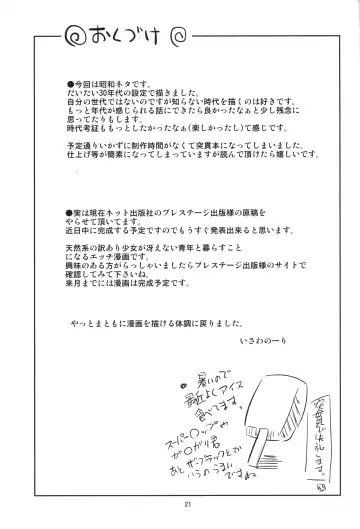 おくづけ
●今回は昭和ネタです。
だいたい30年代の設定で描きました。
自分の世代ではないのですが知らない時代を描くのは好きです。
もっと年代が感じられる話にできたら良かったなぁと少し残念に
思ってたりもします。
時代考証ももっとしたかったなぁ(楽しかったし)て感じです。
予定通りいかずに制作時間がなくて突貫本になってしまいました。
仕上げ等が簡素になってしまっていますが読んで頂けたら嬉しいです。
●実は現在ネット出版社のプレステージ出版様の原稿を
やらせて頂いてます。
近日中に完成する予定ですのでもうすぐ発表出来ると思います。
天然系の訳あり少女が冴えない青年と暮らすこと
になるエッチ漫画です。
興味のある方がらっしゃいましたらプレステージ出版様のサイトで
確認してみて下さいね。
来月までには漫画は完成予定です。
やっとまともに漫画を描ける体調に戻りました。
いさわのーり
●暑いので
最近よくアイス
食べてます。
スーパー○ップや
ガ○ガリ君
あとザ・ブラックとか
いうのうまい
ですね
で失礼します。
21